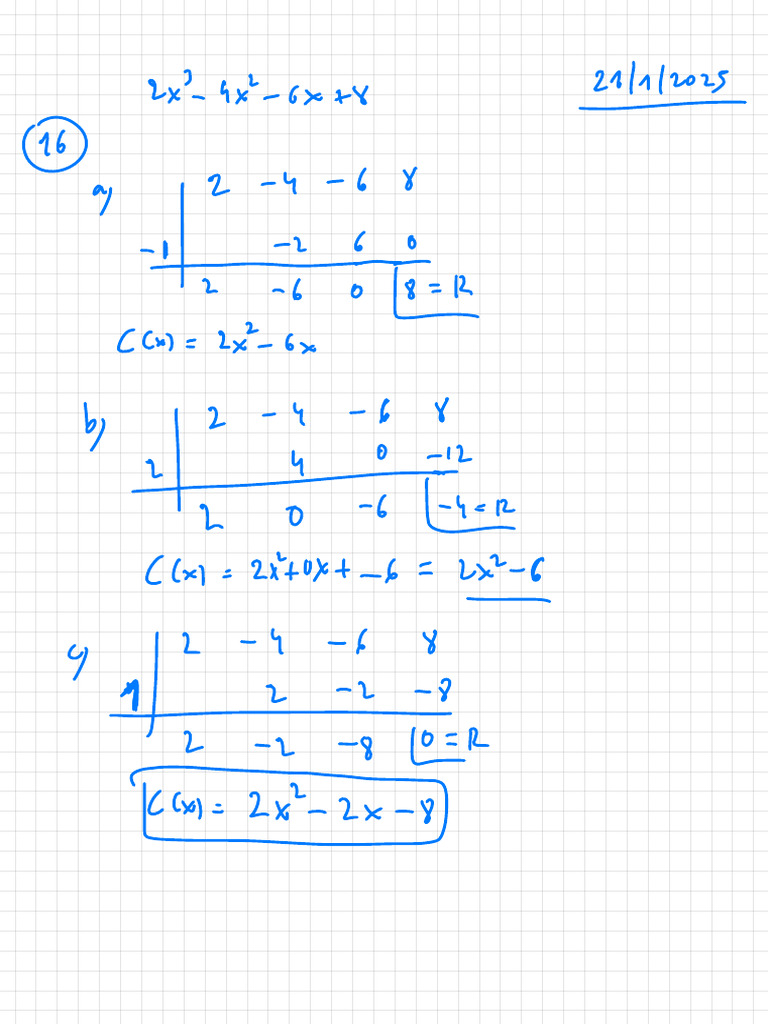 2x³ - 4x² - 6x + 8
21/1/2025
16
a) 2 -4 -6 8
-1 -2 6 0
2 -6 0 8 = R
C(x) = 2x² - 6x
b) 2 -4 -6 8
2 4 0 -12
2 0 -6 -4 = R
C(x) = 2x² + 0x + -6 = 2x² - 6
c) 2 -4 -6 8
1 2 -2 -8
2 -2 -8 0 = R
C(x) = 2x² - 2x - 8